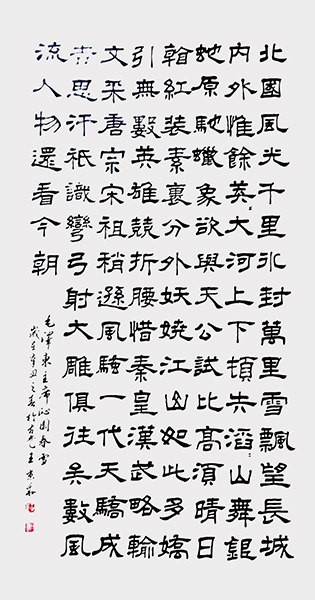 北國風光千里冰封萬里雪飄望長城
内外惟餘莽々大河上下頓失滔々山舞銀
蛇原馳蠟象欲與天公試比高須晴日
看紅裝素裹分外妖嬈江山如此多嬌
引無數英雄競折腰惜秦皇漢武略輸
文采唐宗宋祖稍遜風騷一代天驕成
吉思汗祇識彎弓射大雕俱往矣數風
流人物還看今朝
毛澤東主席沁園春雪
歲在辛丑之春於古亳王